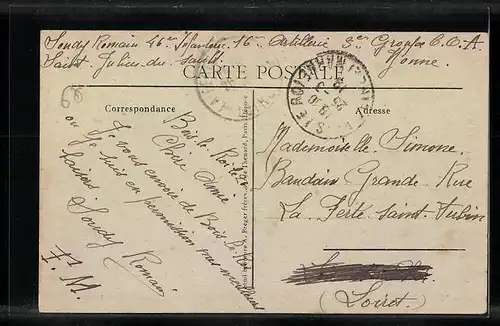 Soudy Romain 46er Infanterie 16e Artillerie 3er Groupe C.O.A
Saint Julien du Sault Yonne
CARTE POSTALE
Correspondance
Adresse
Bois-le-Roi
Chère Amie
Je vous envoie de Bois le Roi
ou je suis en permission mes meilleurs
baisers
Soudy Romain
F. M.
Mademoiselle Simone
Baudain Grande Rue
La Ferté Saint-Aubin
(Loiret)